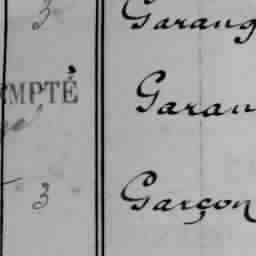 3 Garang
MPTÉ Garan
3 Garçon